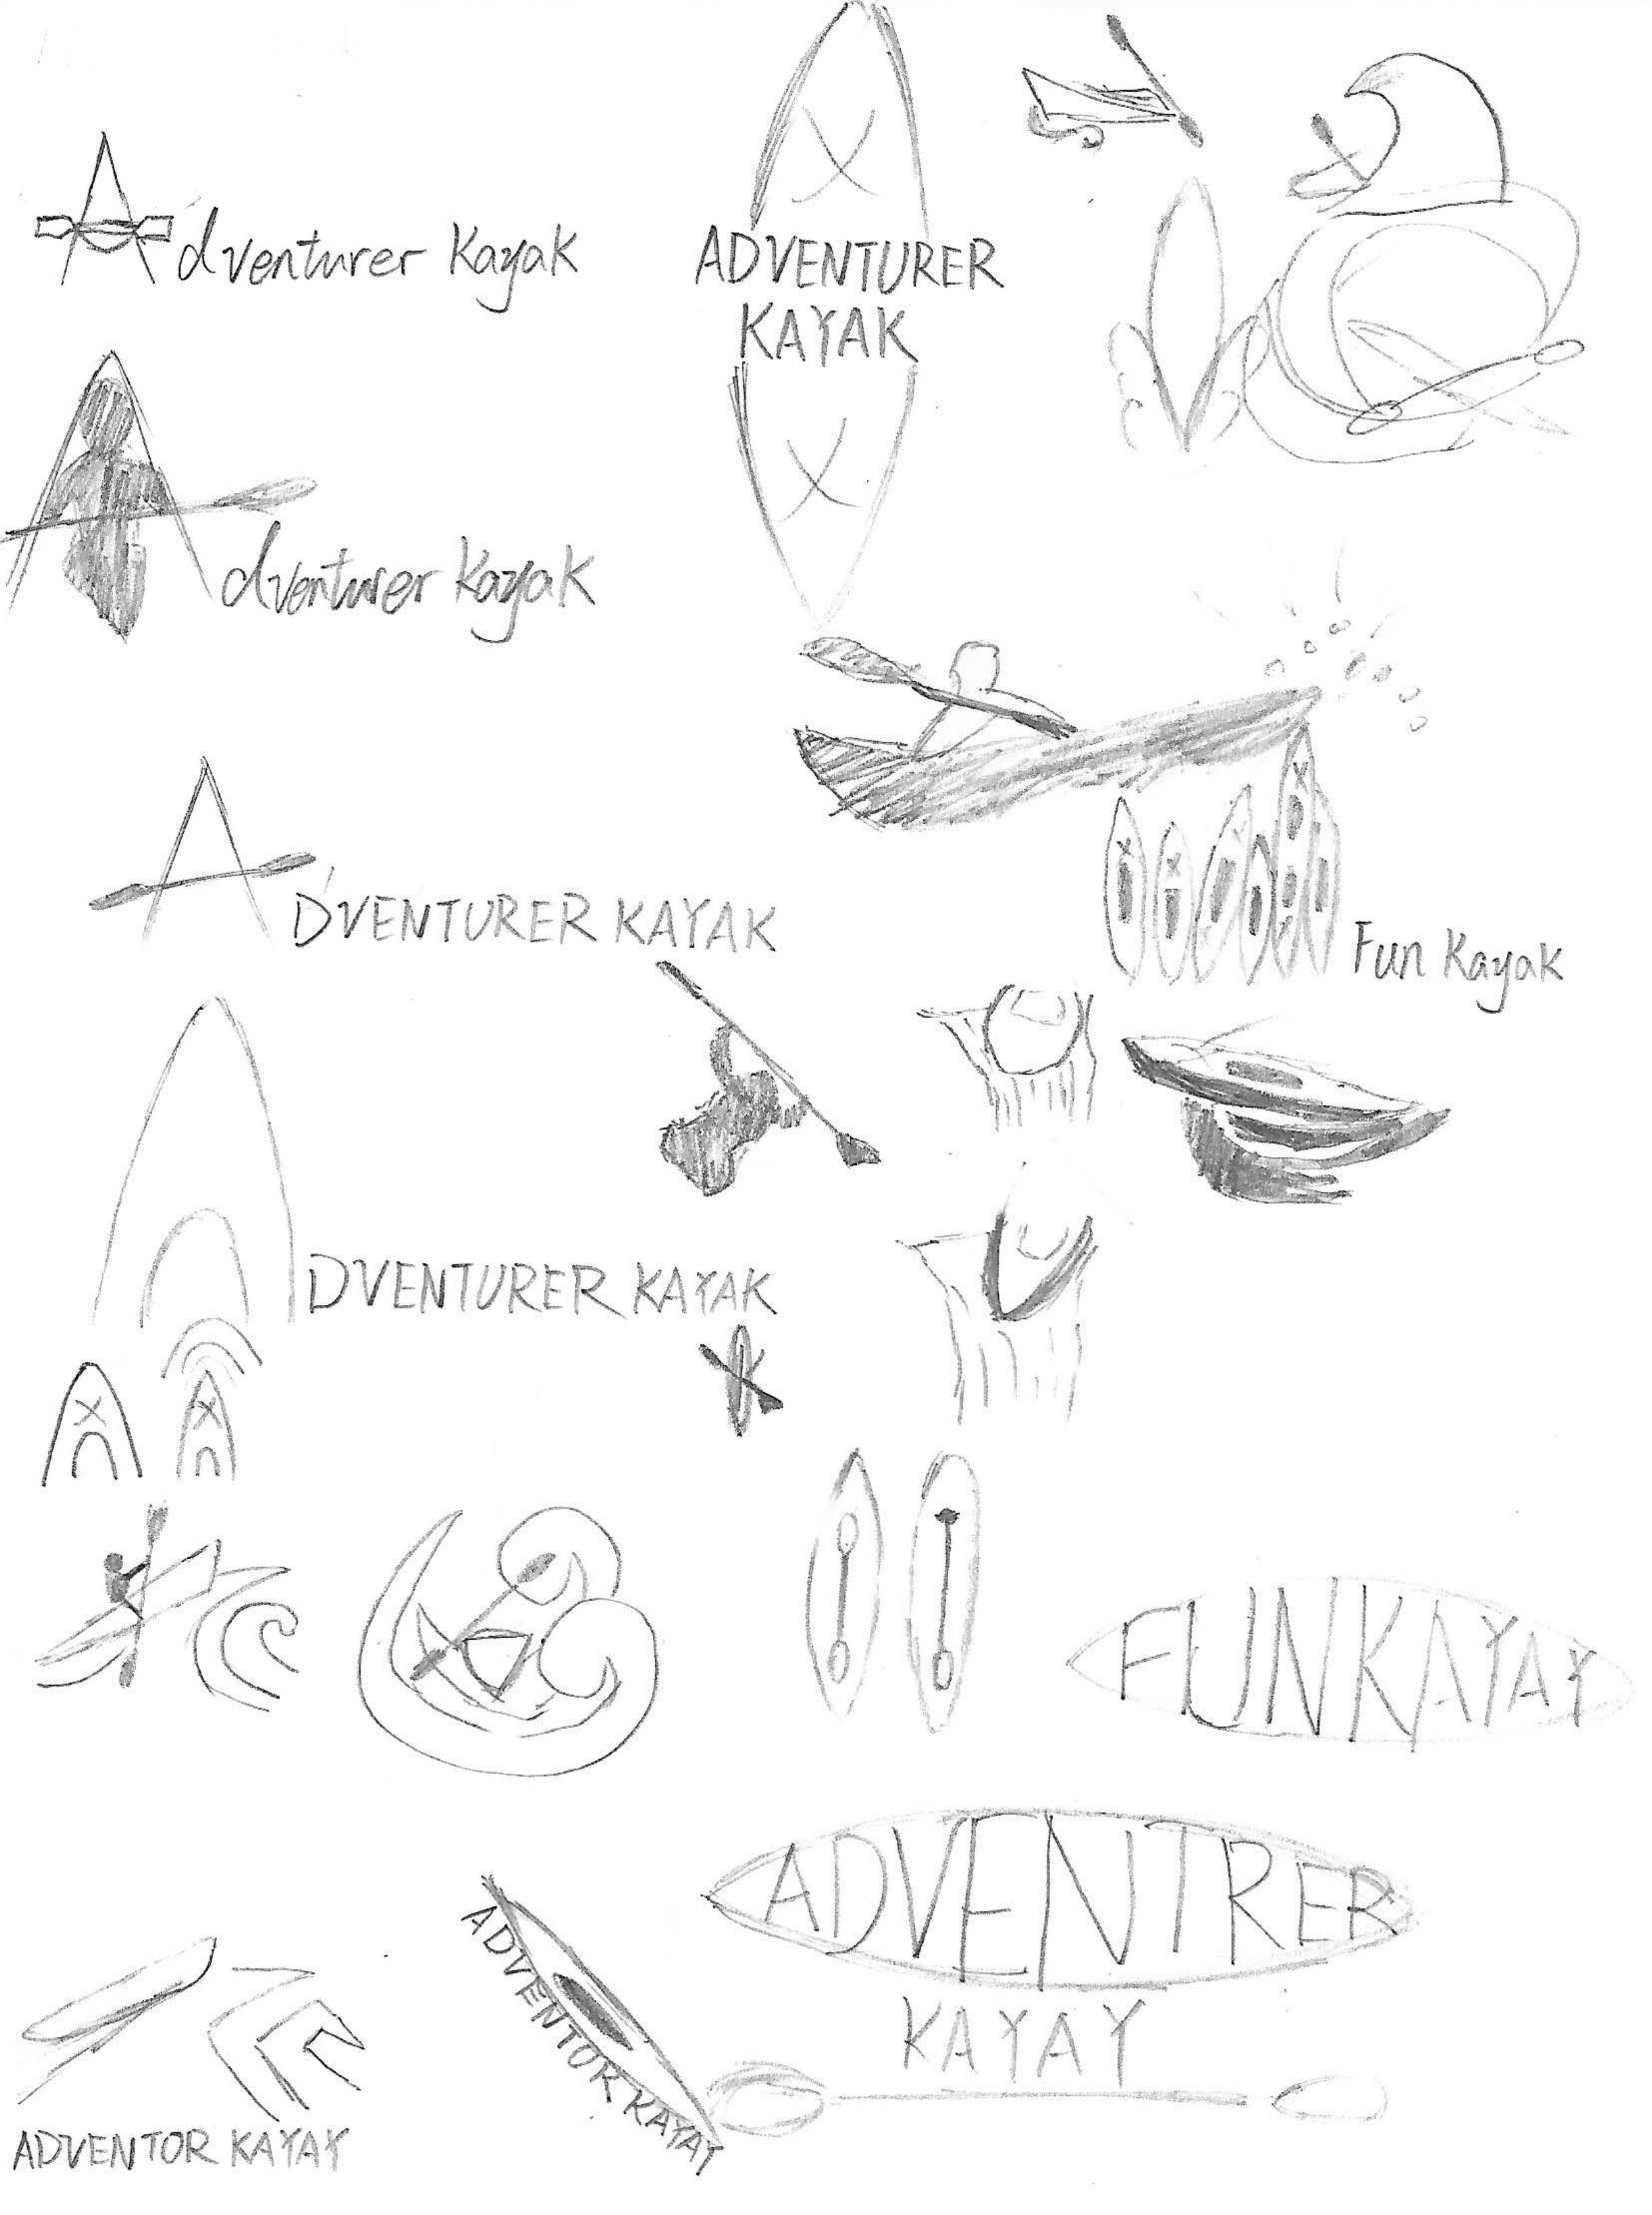 Adventurer Kayak
ADVENTURER
KAYAK
Adventurer Kayak
ADVENTURER KAYAK
Fun Kayak
ADVENTURER KAYAK
FUNKAYAY
ADVENTRER
KAYAY
ADVENTOR KAYAY
ADVENTOR KAYAY